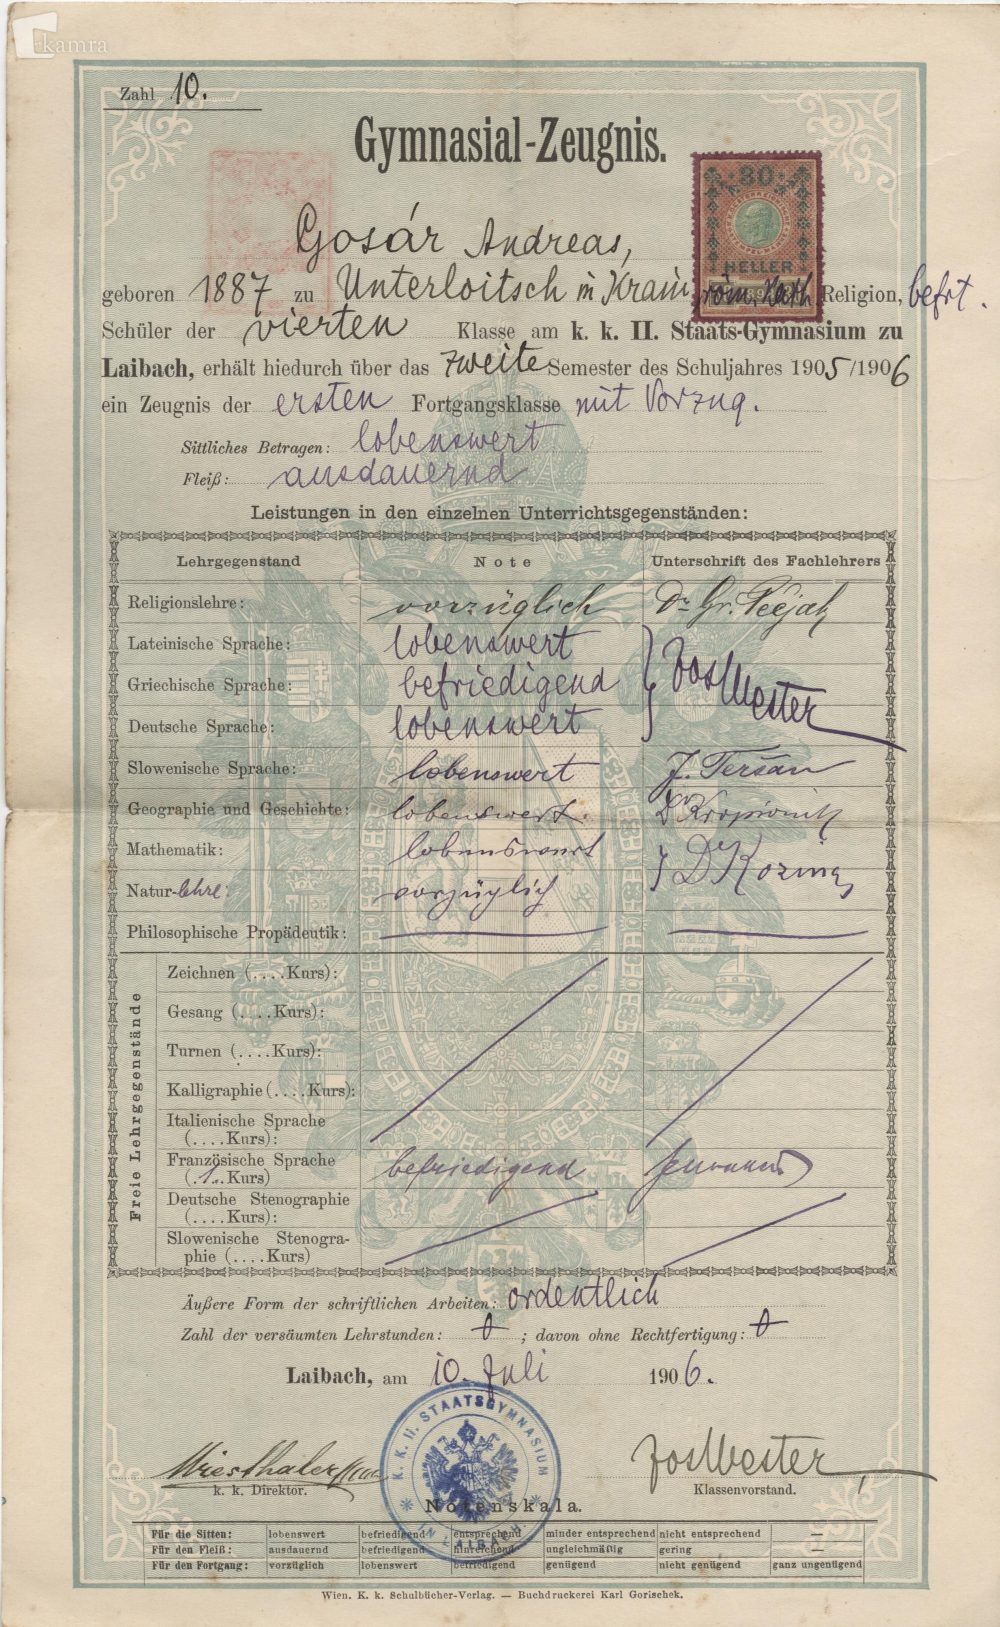 kamra
Zahl 10.
Gymnasial-Zeugnis.
30
HELLER
Gosár Andreas,
geboren 1887 zu Unterloitsch in Krain, röm. kath. Religion, befrt.
Schüler der vierten Klasse am k. k. II. Staats-Gymnasium zu
Laibach, erhält hiedurch über das zweite Semester des Schuljahres 1905/1906
ein Zeugnis der ersten Fortgangsklasse mit Vorzug.
Sittliches Betragen: lobenswert
Fleiß: ausdauernd
Leistungen in den einzelnen Unterrichtsgegenständen:
Lehrgegenstand Note Unterschrift des Fachlehrers
Religionslehre: vorzüglich Dr. Gr. Pečjak
Lateinische Sprache: lobenswert
Griechische Sprache: befriedigend Jos Wester
Deutsche Sprache: lobenswert
Slowenische Sprache: lobenswert J. Teršan
Geographie und Geschichte: lobenswert.
Mathematik: lobenswert
Natur-lehre: vorzüglich Dr Kozina
Philosophische Propädeutik:
Freie Lehrgegenstände
Zeichnen (....Kurs):
Gesang (....Kurs):
Turnen (....Kurs):
Kalligraphie (....Kurs):
Italienische Sprache
(....Kurs):
Französische Sprache
(.1..Kurs) befriedigend
Deutsche Stenographie
(....Kurs):
Slowenische Stenogra-
phie (....Kurs)
Äußere Form der schriftlichen Arbeiten: ordentlich
Zahl der versäumten Lehrstunden: 0 ; davon ohne Rechtfertigung: 0
Laibach, am 10. Juli 1906.
K. K. II. STAATSGYMNASIUM
IN LAIBACH
Wiesthaler
k. k. Direktor.
Jos Wester
Klassenvorstand.
Notenskala.
Für die Sitten: lobenswert befriedigend entsprechend minder entsprechend nicht entsprechend —
Für den Fleiß: ausdauernd befriedigend hinreichend ungleichmäßig gering —
Für den Fortgang: vorzüglich lobenswert befriedigend genügend nicht genügend ganz ungenügend
Wien. K. k. Schulbücher-Verlag. — Buchdruckerei Karl Gorischek.